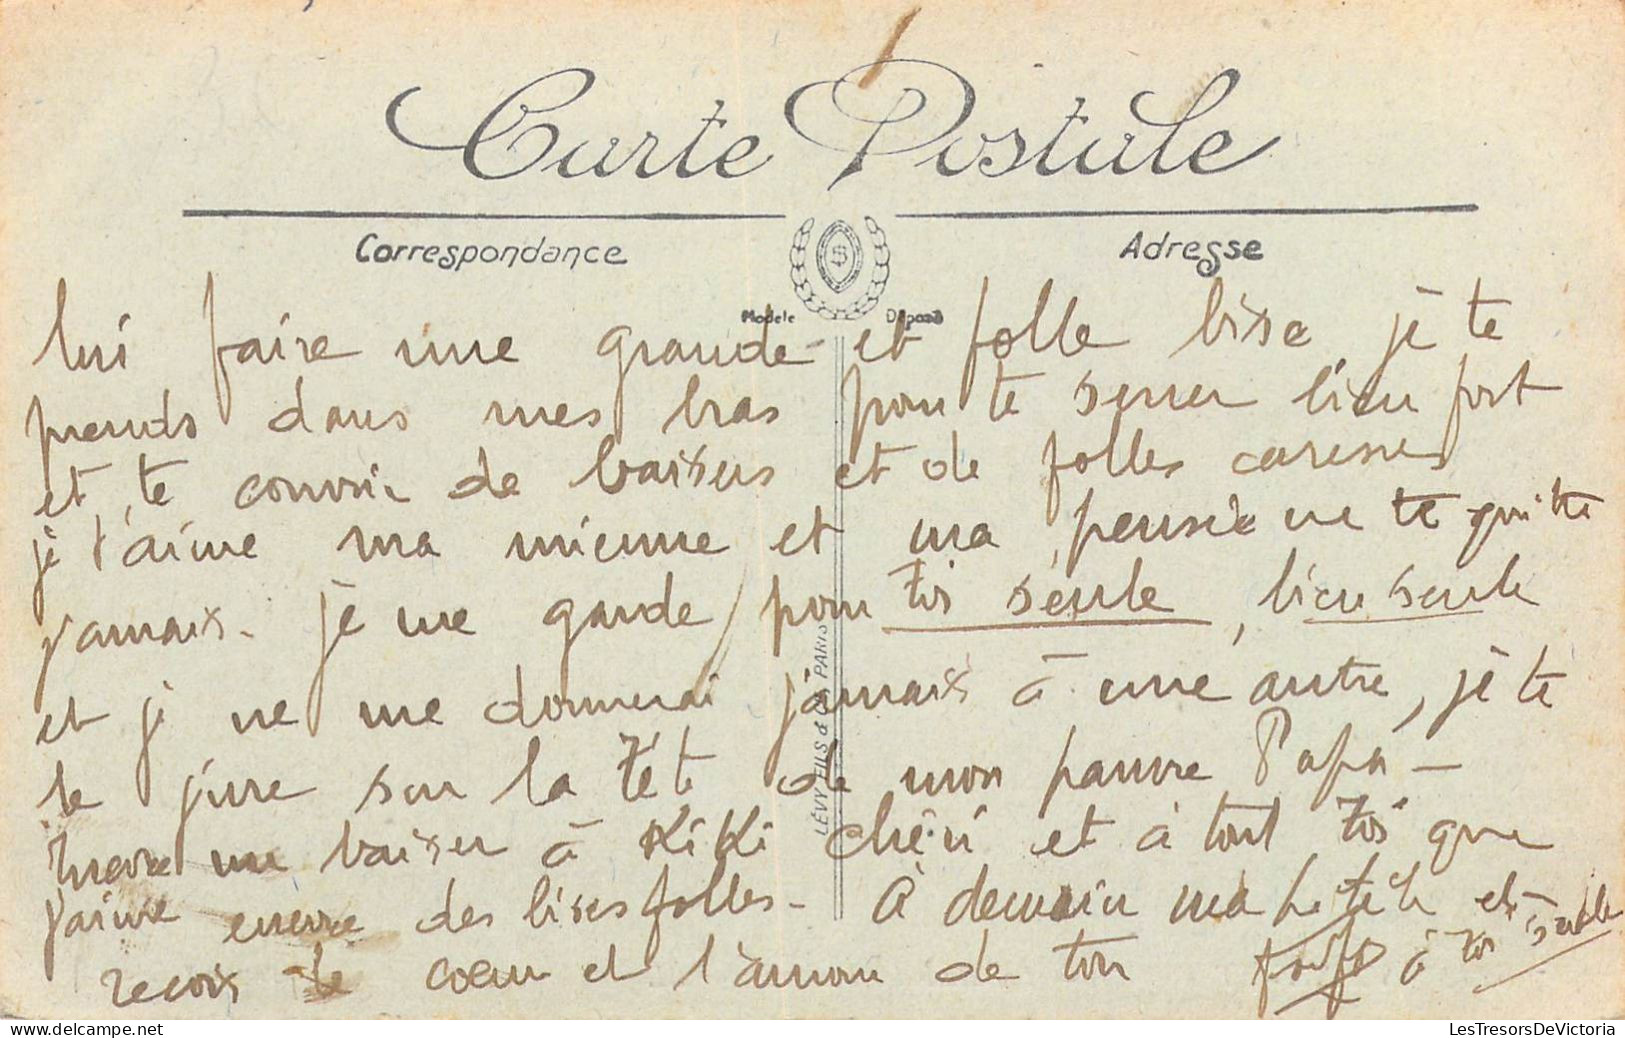 Carte Postale
Correspondance
Adresse
Modèle Déposé
lui faire une grande et folle bise, je te
prends dans mes bras pour te serrer bien fort
et te couvrir de baisers et de folles caresses
je t'aime ma mienne et ma pensée ne te quitte
jamais. je me garde pour toi seule, bien seule
et je ne me donnerai jamais à une autre, je te
le jure sur la tête de mon pauvre Papa -
encore un baiser à KiKi chéri et à tout toi que
j'aime encore des bises folles - à demain ma et
reçois le cœur et l'amour de ton à toi seule
LÉVY FILS & Cie PARIS
LesTresorsDeVictoria